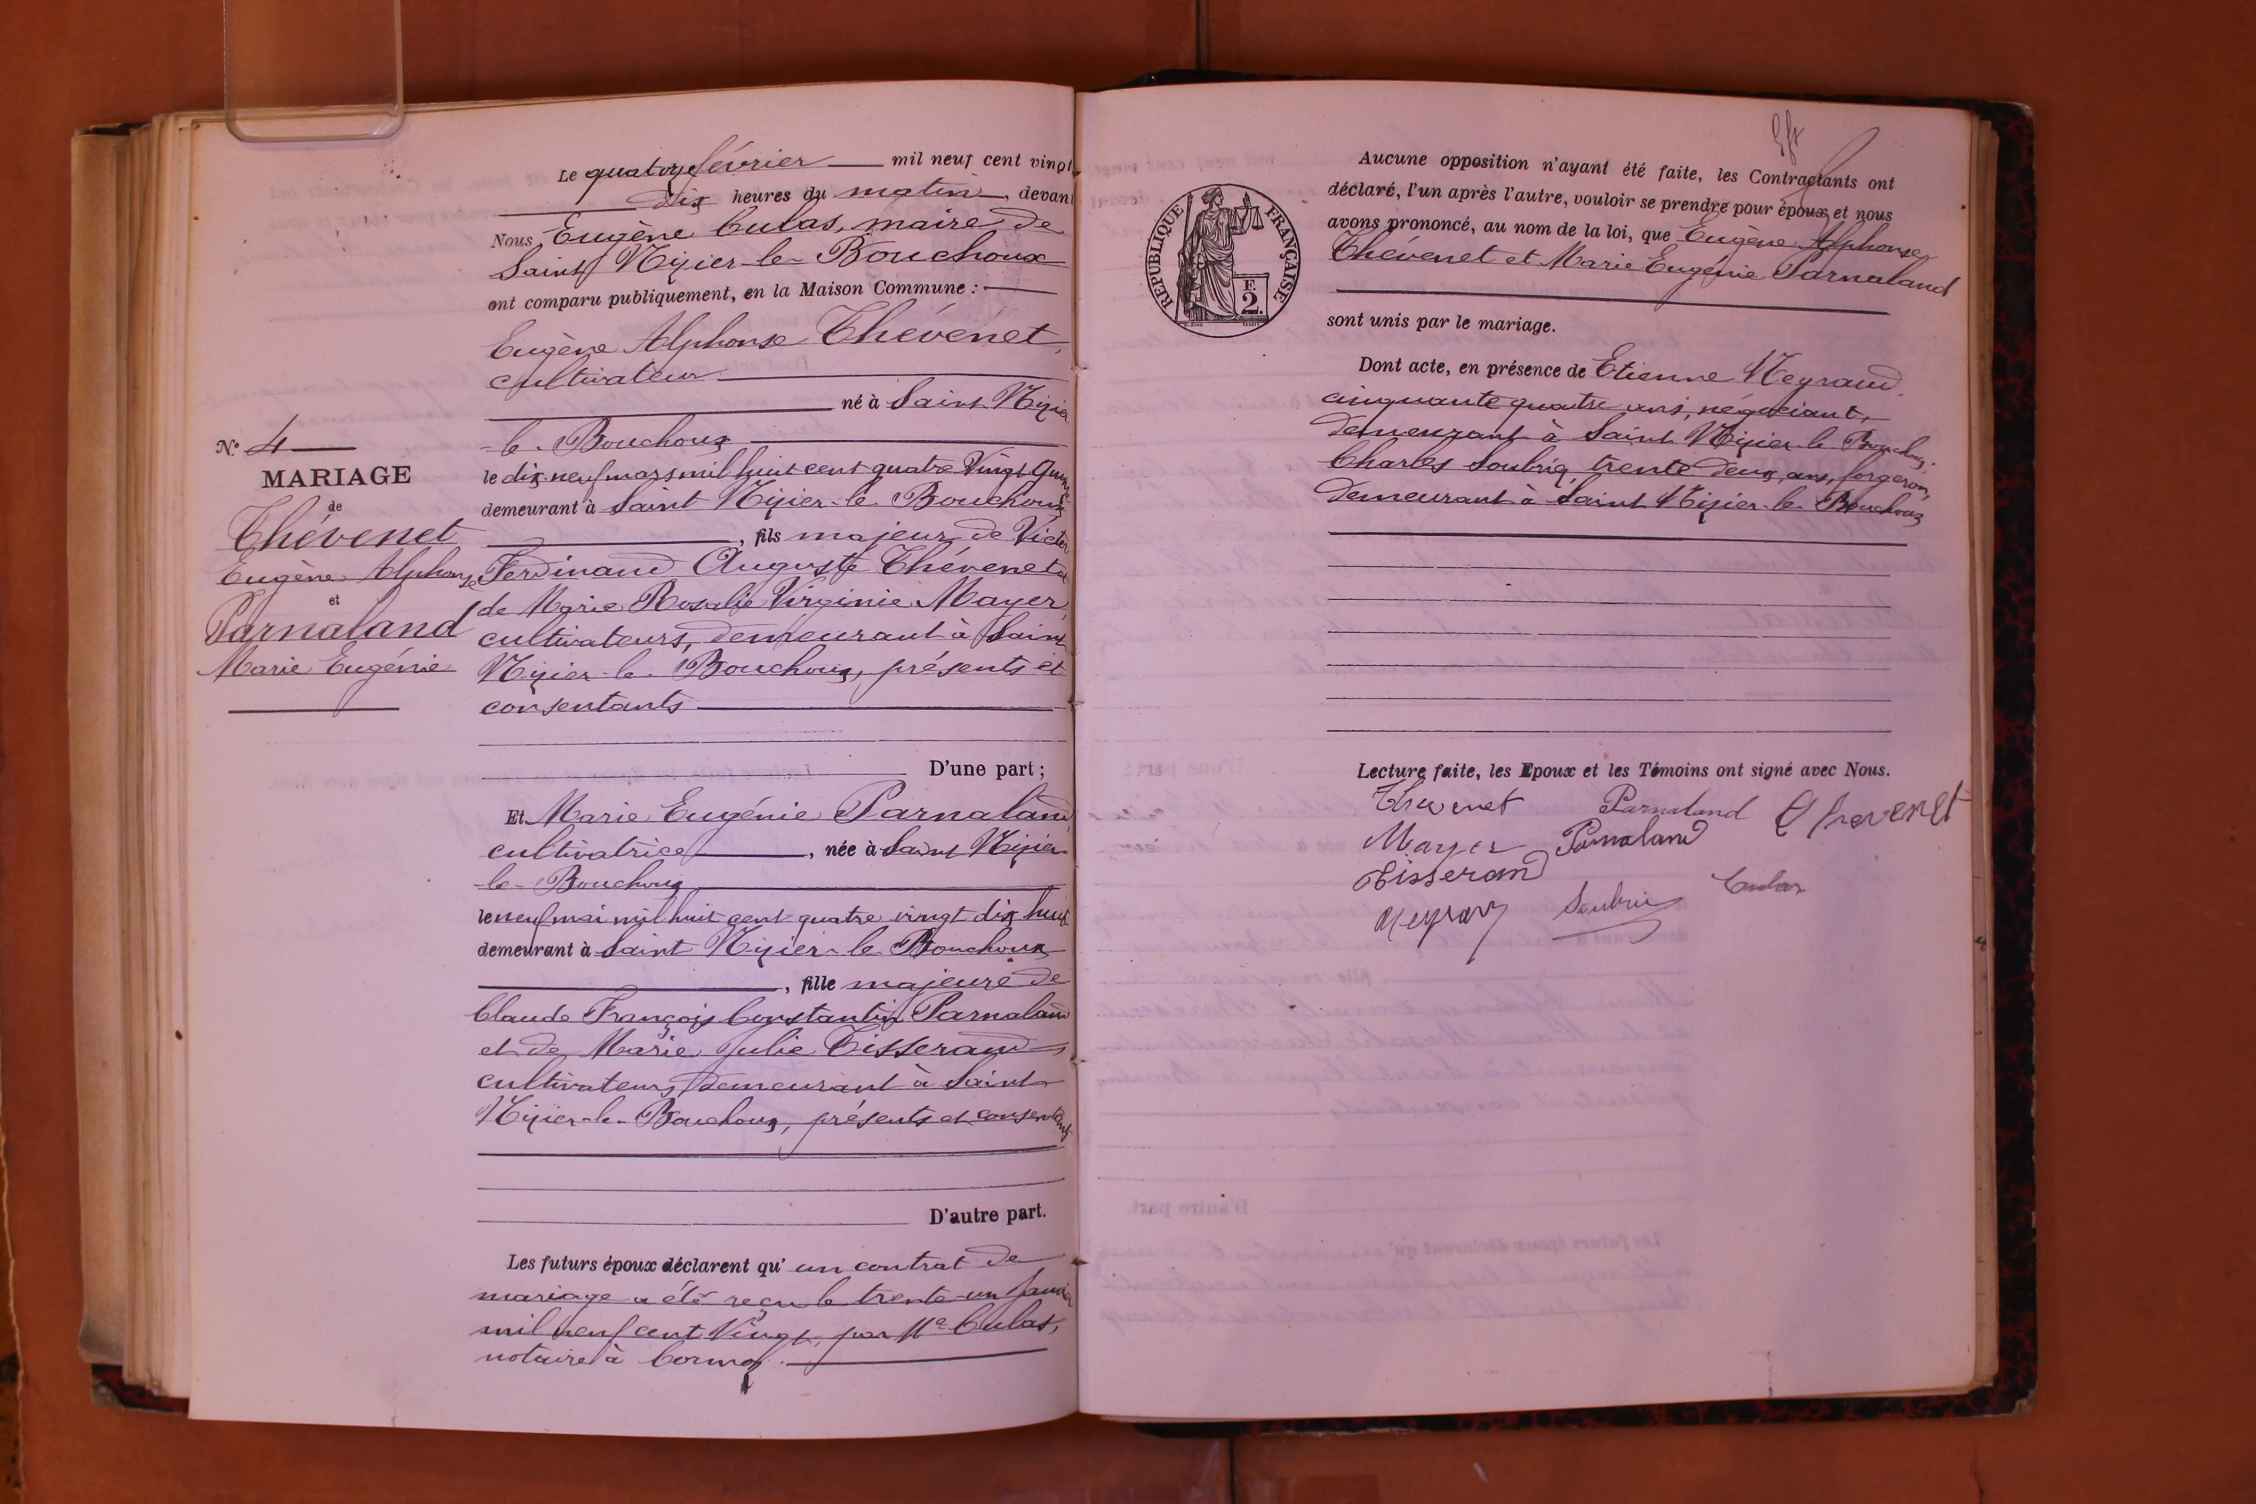 Le quatorze février mil neuf cent vingt
dix heures du matin, devant
Nous Eugène Culas, maire de
Saint Nizier-le-Bouchoux
ont comparu publiquement, en la Maison Commune :
Eugène Alphonse Thévenet,
cultivateur
né à Saint Nizier
-le-Bouchoux
le dix-neuf mars mil huit cent quatre vingt quinze
demeurant à Saint Nizier-le-Bouchoux
, fils majeur de Victor
Ferdinand Auguste Thévenet et
de Marie Rosalie Virginie Mayer,
cultivateurs, demeurant à Saint
Nizier-le-Bouchoux, présents et
consentants
D'une part ;
Et Marie Eugénie Parnaland,
cultivatrice, née à Saint Nizier
-le-Bouchoux
le neuf mai mil huit cent quatre vingt dix huit
demeurant à Saint Nizier-le-Bouchoux
, fille majeure de
Claude François Constantin Parnaland
et de Marie Julie Tisserand,
cultivateurs, demeurant à Saint
Nizier-le-Bouchoux, présents et consentants
D'autre part.
Les futurs époux déclarent qu'un contrat de
mariage a été reçu le trente-un janvier
mil neuf cent vingt, par Me Culas,
notaire à Cormoz.
N° 4
MARIAGE
de
Thévenet
Eugène Alphonse
et
Parnaland
Marie Eugénie
RÉPUBLIQUE FRANÇAISE
F.
2.
Aucune opposition n'ayant été faite, les Contractants ont
déclaré, l'un après l'autre, vouloir se prendre pour époux et nous
avons prononcé, au nom de la loi, que Eugène Alphonse
Thévenet et Marie Eugénie Parnaland
sont unis par le mariage.
Dont acte, en présence de Etienne Neyraud,
cinquante quatre ans, négociant,
demeurant à Saint Nizier-le-Bouchoux.
Charles Soubrié, trente deux ans, forgeron,
demeurant à Saint Nizier-le-Bouchoux
Lecture faite, les Epoux et les Témoins ont signé avec Nous.
Thevenet Parnaland E Thevenet
Mayer Parnaland
Tisserand
Soubrié Culas